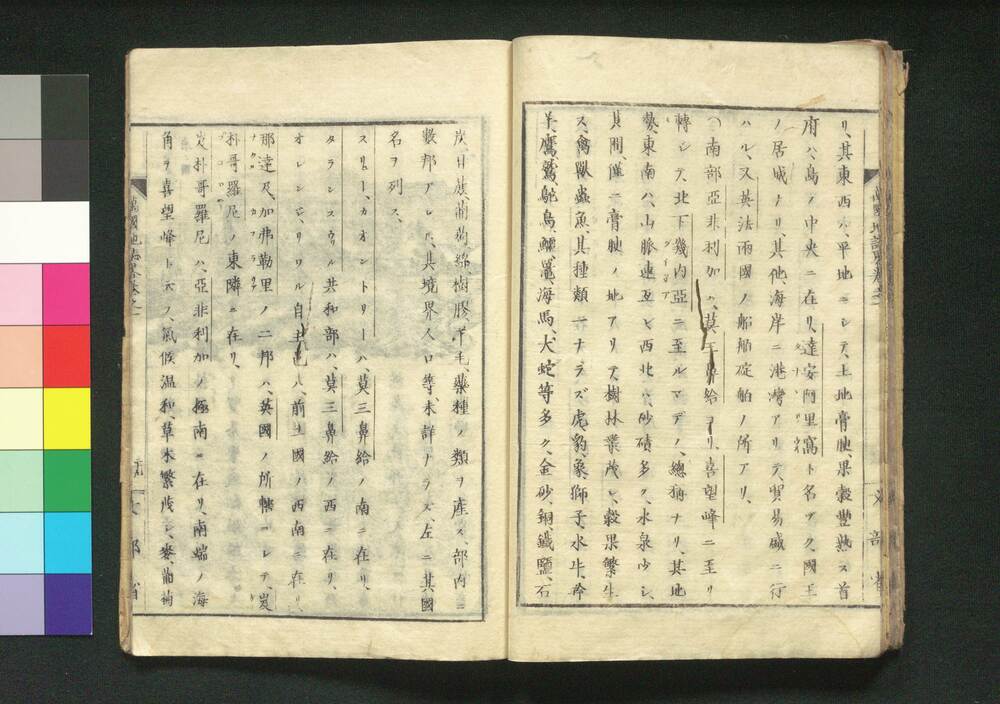 リ、其東西ハ、平地ニシテ、土地膏腴、果穀豊熟ス首
府ハ、島ノ中央ニ在リ、達安阿里窩ト名ヅク、國王
ノ居城ナリ、其他、海岸ニ港灣アリテ、貿易盛ニ行
ハル、又英法兩國ノ船舶碇舶ノ所アリ、
南部亞非利加ハ、莫三鼻給ヨリ、喜望峰ニ至リ
轉シテ、北下幾內亞ニ至ルマデノ、總稱ナリ、其地
勢東南ハ、山脈連亙シ西北ハ、砂磧多ク、水泉少シ、
其間、僅ニ膏腴ノ地アリテ、樹林叢茂シ、穀果繁生
ス、禽獸蟲魚、其種類一ナラズ、虎、豹、象、獅子、水牛、羚
羊、鷹、鷲、鴕鳥、鱷、鼉、海馬、大蛇等多ク、金砂、銅、鐵、鹽、石
炭、甘蔗、葡萄、綿、樹膠、羊毛、藥種ノ類ヲ產ス、部內ニ
數邦アレド、其境界人口等、未詳ナラズ、左ニ其國
名ヲ列ス、
スリュー、カオントリーハ、莫三鼻給ノ南ニ在リ、
タランスウルル共和部ハ、莫三鼻給ノ西ニ在リ、
オレンジ、リワル自主邑ハ、前土國ノ西南ニ在リ、
那達及加弗勒里ノ二邦ハ、英國ノ所轄ニシテ、炭
朴哥羅尼ノ東隣ニ在リ、
炭朴哥羅尼ハ、亞非利加ノ極南ニ在リ、南端ノ海
角ヲ喜望峰ト云フ、氣候溫和、草木繁茂シ、麥、葡萄
文部省